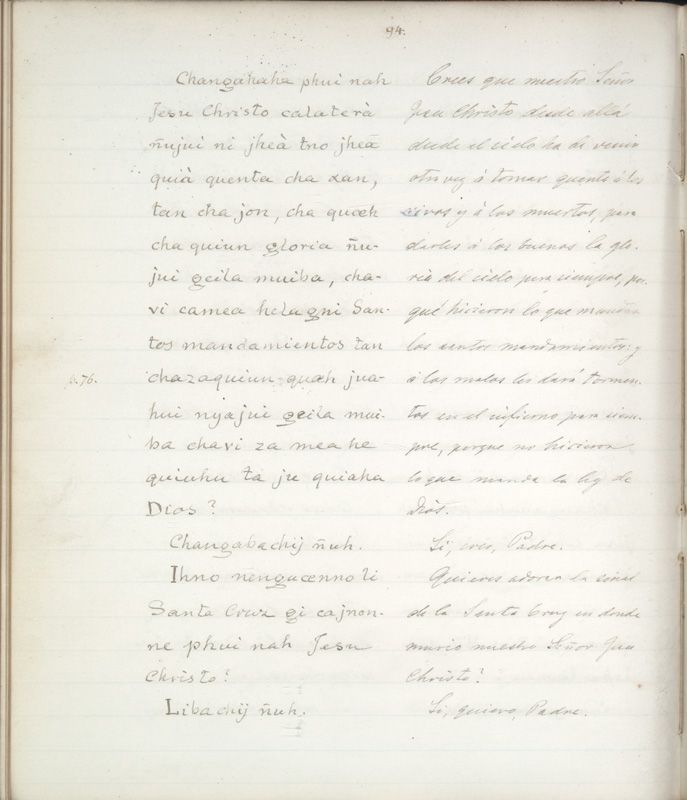 94.
Changahaha phui nah
Jesu Christo calaterà
ñujui ni jheà tno jhea
quià quenta cha xan,
tan cha jon, cha quæh
cha quiun gloria ñu-
jui geila muiba, cha-
vi camea helagni San-
tos mandamientos tan
a. 76.
chazaquiun quæh jua-
hui nyajui geila mui-
ba chavi za mea he
quiuhu ta je quiaha
Dios?
Changabachij ñuh.
Ihno nengucenno li
Santa Cruz gi cajnon-
ne phui nah Jesu
Christo?
Libachij ñuh.
Crees que nuestro Señor
Jesu Christo desde allá
desde el cielo ha de venir
otra vez á tomar quenta á los
vivos y á los muertos, para
darles á los buenos la glo-
ria del cielo para siempre, por-
qué hicieron lo que mandan
los santos mandamientos: y
á los malos les dará tormen-
tos en el infierno para siem-
pre, porque no hicieron
lo que manda la ley de
Diós.
Si, creo, Padre.
Quieres adorar la señal
de la Santa Cruz en donde
murio nuestro Señor Jesu
Christo?
Si, quiero, Padre.